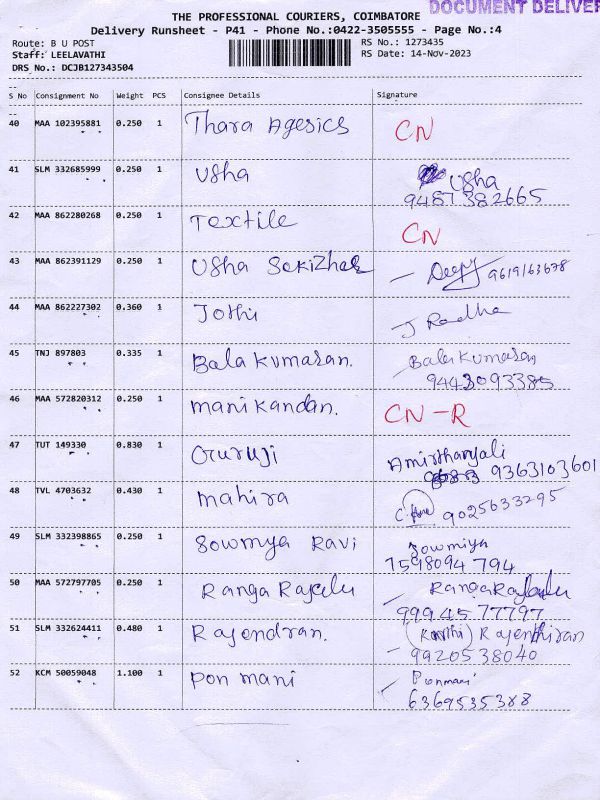 DOCUMENT DELIVER
THE PROFESSIONAL COURIERS, COIMBATORE
Delivery Runsheet - P41 - Phone No.:0422-3505555 - Page No.:4
Route: B U POST
Staff: LEELAVATHI
DRS No.: DCJB127343504
RS No.: 1273435
RS Date: 14-Nov-2023
S No Consignment No Weight PCS Consignee Details Signature
40 MAA 102395881 0.250 1 Thara Agesics CN
41 SLM 332685999 0.250 1 Usha Usha
9487382665
42 MAA 862280268 0.250 1 Textile CN
43 MAA 862391129 0.250 1 Usha Sekizhar Deepy 9619163678
44 MAA 862227302 0.360 1 Jothi J Radha
45 TNJ 897803 0.335 1 Bala Kumaran. Bala Kumaran
9443093385
46 MAA 572820312 0.250 1 Manikandan. CN-R
47 TUT 149330 0.830 1 Guruji Amirthanjali
9363103601
48 TVL 4703632 0.430 1 Mahira 9025633295
49 SLM 332398865 0.250 1 Sowmya Ravi Sowmiya
7598094794
50 MAA 572797705 0.250 1 Ranga Rajulu RangaRajulu
9994577797
51 SLM 332624411 0.480 1 Rajendran. Rajenthiran
9920538040
52 KCM 50059048 1.100 1 Pon mani Ponmani
6369535388